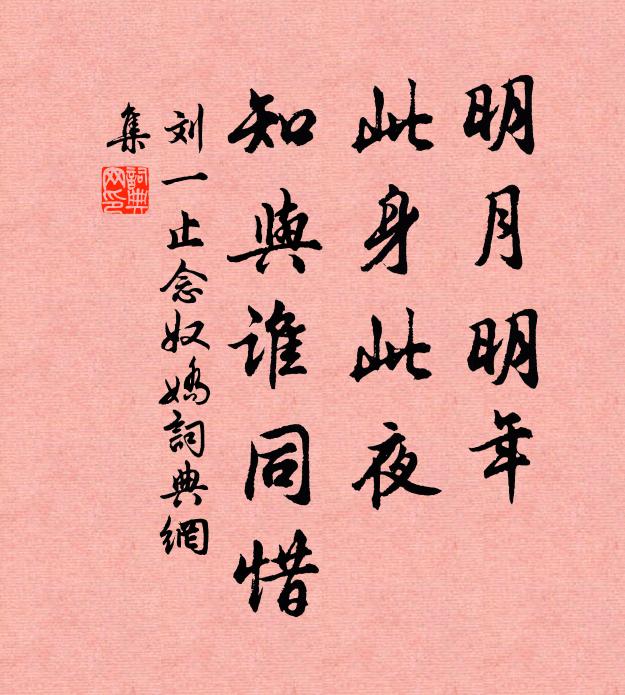 明月明年
此身此夜
知與谁同惜
刘一止念奴嬌詞典網
集
詞典
网印